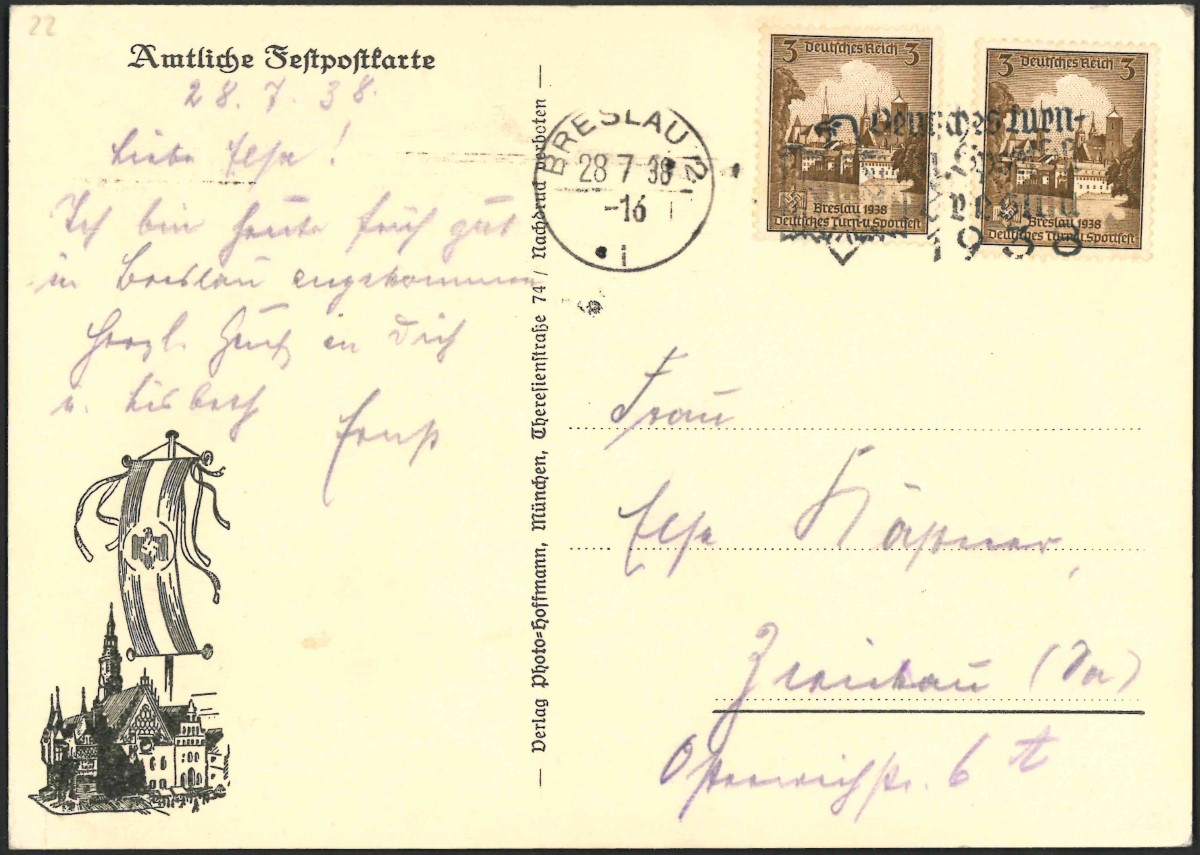 22
Amtliche Festpostkarte
28.7.38.
Liebe Else!
Ich bin heute früh gut
in Breslau angekommen
Herzl. Gruß an Dich
u. Lisbeth
Ernst
— Verlag Photo-Hoffmann, München, Theresienstraße 74 / Nachdruck verboten —
BRESLAU 2
28 7 38
-16
3 Deutsches Reich 3
Breslau 1938
Deutsches Turn- u. Sportfest
3 Deutsches Reich 3
Breslau 1938
Deutsches Turn- u. Sportfest
Deutsches Turn-
Breslau
1938
Frau
Else Käßner,
Zwickau (Sa)